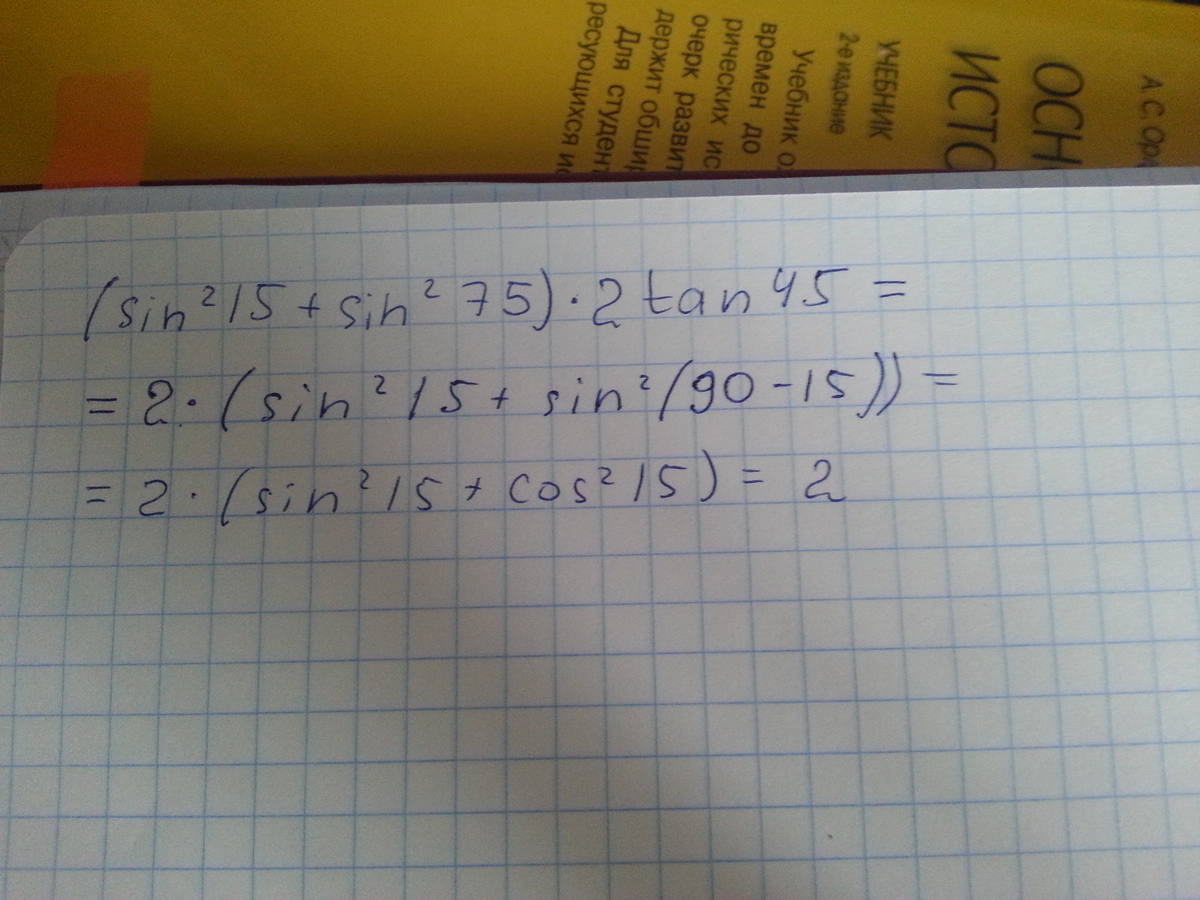 А. С. Ор
ОСН
ИСТО
УЧЕБНИК
2-е издание
Учебник о
времен до
рических ис
очерк развит
держит обши
Для студент
ресующихся и
(sin²15 + sin²75)·2 tan 45 =
= 2·(sin²15 + sin²(90-15)) =
= 2·(sin²15 + cos²15) = 2